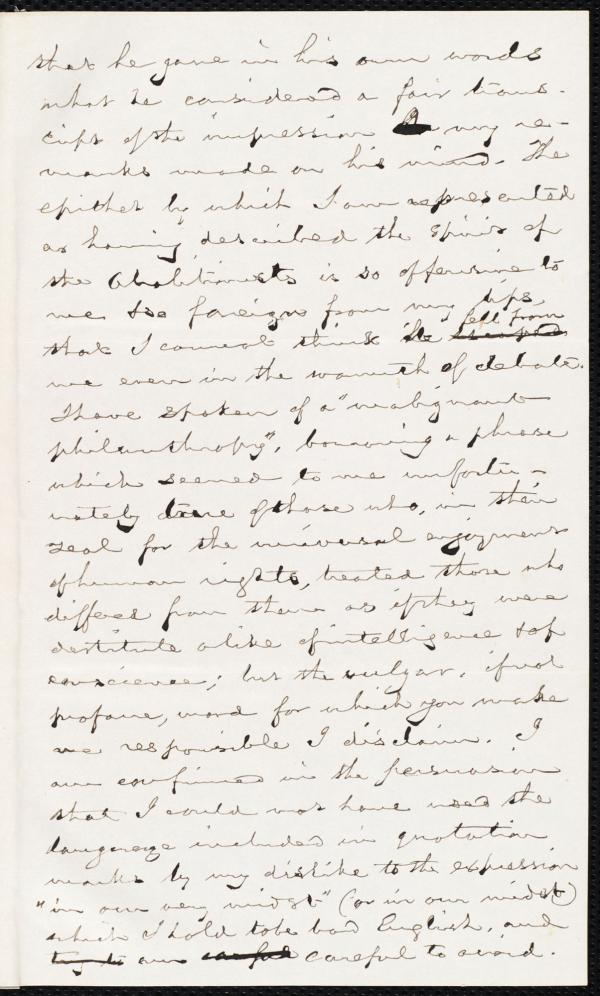 that he gave in his own words
what he considered a fair trans-
cript of the impression my re-
marks made on his mind. The
epithet by which I am represented
as having described the spirit of
the Abolitionists is so offensive to
me & so foreign from my lips,
that I cannot think it fell from
me even in the warmth of debate.
I have spoken of a "malignant
philanthropy", borrowing a phrase
which seemed to me unfortu-
nately true of those who, in their
zeal for the universal enjoyment
of human rights, treated those who
differed from them as if they were
destitute alike of intelligence & of
conscience; but the vulgar, if not
profane, word for which you make
me responsible I disclaim. I
am confirmed in the persuasion
that I could not have used the
language included in quotation
marks by my dislike to the expression
"in our very midst" (or in our midst)
which I hold to be bad English, and
try to am careful careful to avoid.